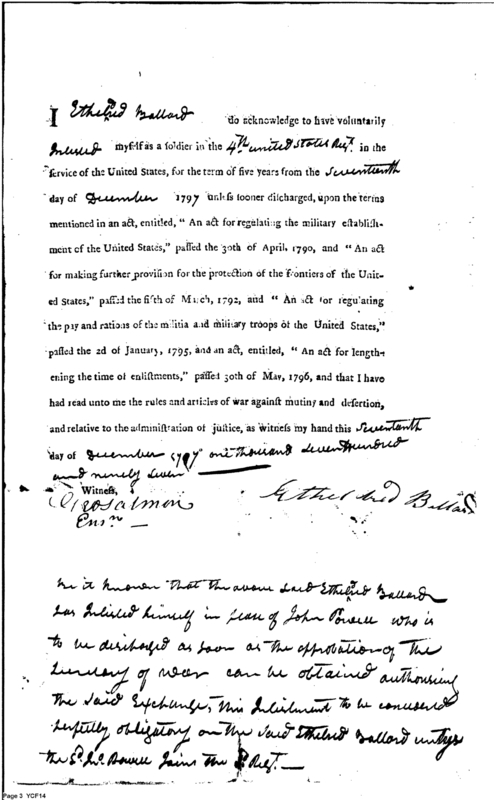 I Ethelred Ballard do acknowledge to have voluntarily
Inlisted myself as a soldier in the 4th united States Regt. in the
service of the United States, for the term of five years from the Seventeenth
day of December 1797 unless sooner discharged, upon the terms
mentioned in an act, entitled, “ An act for regulating the military establish-
ment of the United States,” passed the 30th of April, 1790, and “ An act
for making further provision for the protection of the frontiers of the Unit-
ed States,” passed the fifth of March, 1792, and “ An act for regulating
the pay and rations of the militia and military troops of the United States,”
passed the 2d of January, 1795, and an act, entitled, “ An act for length-
ening the time of enlistments,” passed 30th of May, 1796, and that I have
had read unto me the rules and articles of war against mutiny and desertion,
and relative to the administration of justice, as witness my hand this Seventeenth
day of December 1797 one thousand Seven Hundred
and ninety Seven
Witness,
Salmon
Ensn
Ethelred Ballard
Be it known that the above said Ethelred Ballard
has Inlisted himself in place of John Powell who is
to be discharged as soon as the approbation of the
Secretary of war can be obtained authorising
the said Exchange, this Inlistment to be considered
perfectly obligatory on the said Ethelred Ballard untill
the Sd. Jno. Powell Joins the Regt.
Page 3 YCF14